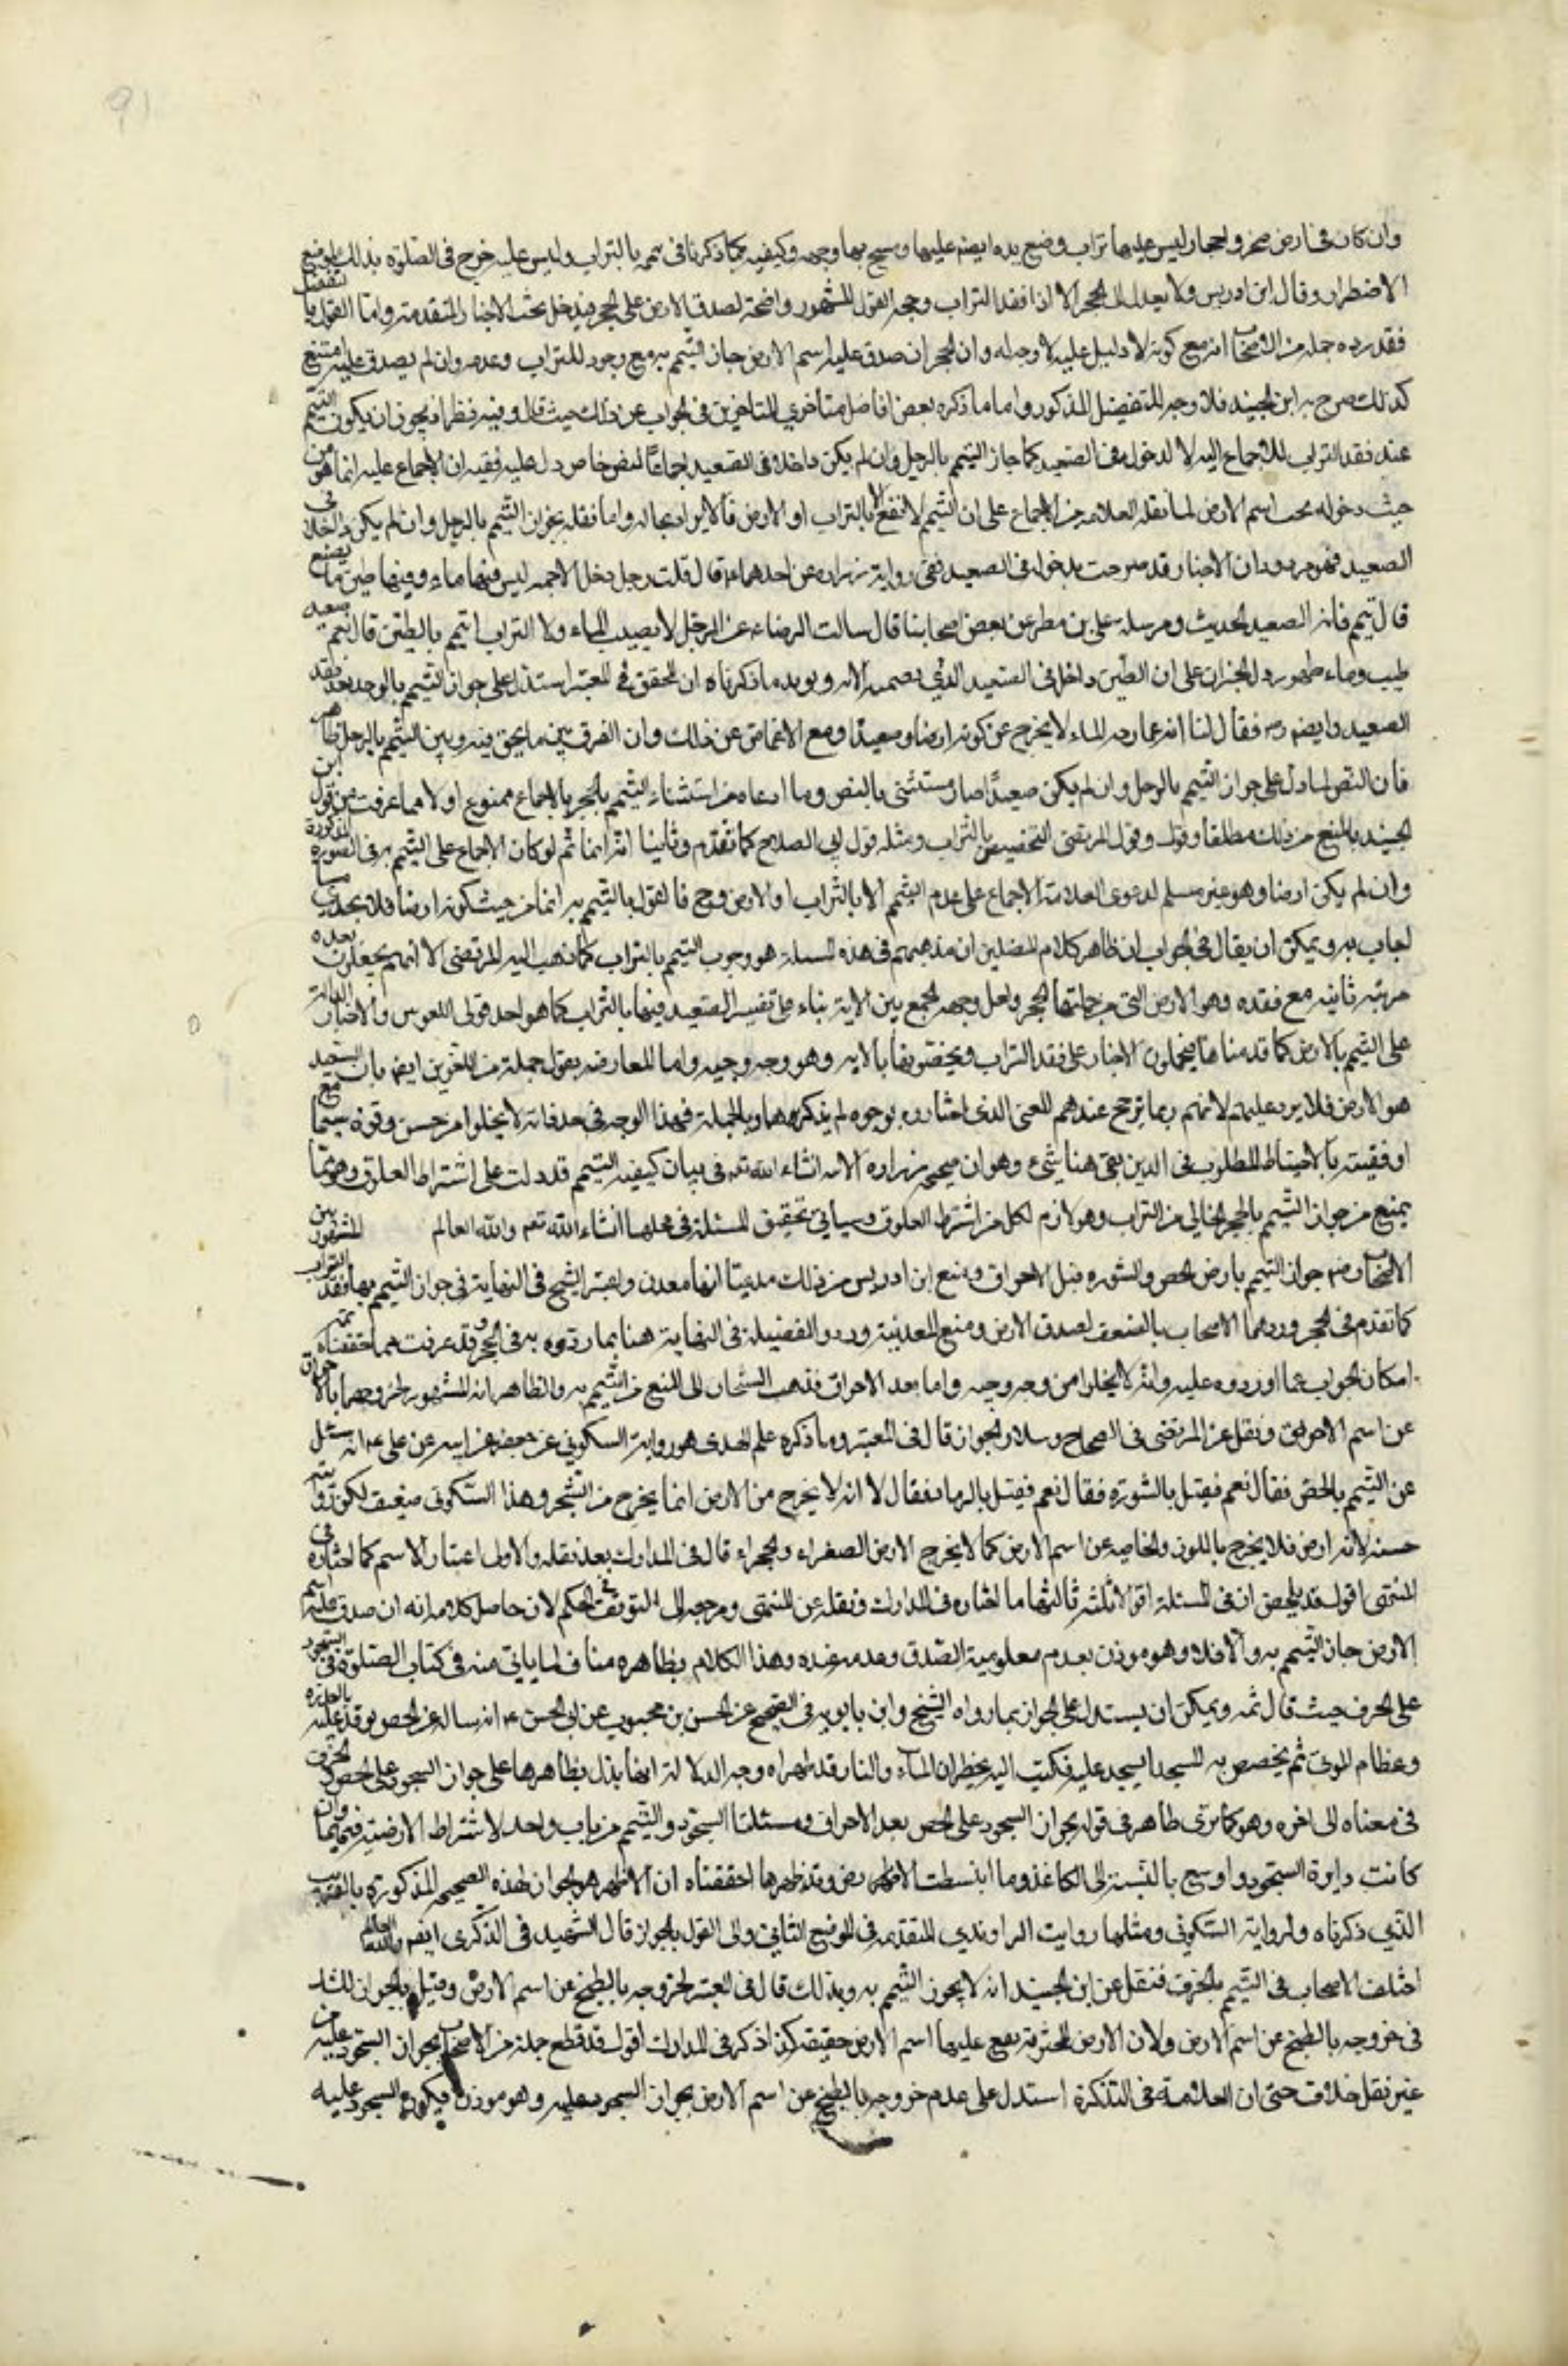 وان كان فى ارض صخر واحجار ليس عليها تراب وضع يده ايضا عليها ومسح بها وجهه وكيفيه كما ذكرنا فى تيممه بالتراب وليس عليه حرج فى الصلوة بذلك لموضع
الاضطرار وقال ابن ادريس ولا يعدل الى الحجر الا اذا فقد التراب ووجه القول المشهور واضحة لصدق الارض على الحجر فيدخل تحت الاخبار المتقدمة واما القول بالتفصيل
فقد رده جملة من الاصحاب انه مع كونه لا دليل عليه لا وجه له وان الحجر ان صدق عليه اسم الارض جاز التيمم به مع وجود التراب وعدمه وان لم يصدق عليه امتنع
كذلك صرح به ابن الجنيد فلا وجه للتفصيل المذكور واما ما ذكره بعض افاضل متأخري المتاخرين فى الجواب عن ذلك حيث قال وفيه نظر اذ يجوز ان يكون التيمم
عند فقد التراب للاجماع اليه لا لدخوله فى الصعيد كما جاز التيمم بالوحل وان لم يكن داخلا فى الصعيد اجماعا لنص خاص دل عليه ففيه ان الاجماع عليه انما هو من
حيث دخوله تحت اسم الارض لما نقله العلامه من الاجماع على ان التيمم لا يقع الا بالتراب او الارض فالايراد بحاله واما نقله بجواز التيمم بالوحل وان لم يكن داخلا فى
الصعيد فهو مردود ان الاخبار قد صرحت بدخوله فى الصعيد ففى رواية زراره عن احدهما ع قال قلت رجل دخل الاجمه ليس فيها ماء وفيها طين ما يصنع
قال تيمم فانه الصعيد الحديث ومرسلة على بن مطر عن بعض اصحابنا قال سالت الرضا ع عن الرجل لا يصيب الماء ولا التراب ايتيمم بالطين قال نعم صعيد
طيب وماء طهور دل الخبران على ان الطين داخل فى الصعيد الذي تضمنه الاية ويويد ما ذكرناه ان المحقق فى المعتبر استدل على جواز التيمم بالوحل بعد فقد
الصعيد وايضا فقال لنا انه بممازجه الماء لا يخرج عن كونه ارضا وصعيدا ومع الاغماض عن ذلك وان الفرق بين ما نحن فيه وبين التيمم بالوحل ظاهر
فان النص لما دل على جواز التيمم بالوحل وان لم يكن صعيدا صار مستثنى بالنص وما ادعاه من استثناء التيمم بالحجر بالاجماع ممنوع اولا مما عرفت من قول ابن
الجنيد بالمنع من ذلك مطلقا وقول المرتضى التخصيص بالتراب ومثله قول ابى الصلاح كما تقدم وثانيا انه انما ثم لو كان الاجماع على التيمم به فى الصورة المذكورة
وان لم يكن ارضا وهو غير مسلم لدعوى العلامة الاجماع على عدم التيمم الا بالتراب او الارض وح فالقول بالتيمم به انما من حيث كونه ارضا فلا يجدي ما
اجاب به ويمكن ان يقال فى الجواب ان ظاهر كلام المفصلين ان مذهبهم فى هذه المسئلة هو وجوب التيمم بالتراب كما ذهب اليه المرتضى الا انهم يجعلون بعده
مرتبه ثانيه مع فقده وهو الارض التى من جملتها الحجر ولعل وجهه الجمع بين الاية بناء على تفسير الصعيد فيها بالتراب كما هو احد قولى اللغويين والاخبار الدالة
على التيمم بالارض كما قدمناها فيحملون الاخبار على فقد التراب ويخصونها بالايه وهو وجه وجيه واما المعارضه بقول جملة من اللغويين ايضا بان الصعيد
هو الارض فلا يرد عليهم لانهم ربما ترجح عندهم المعنى الذى اختاروه بوجوه لم يذكروها وبالجملة فهذا الوجه فى حد ذاته لا يخلوا من حسن وقوة سيما مع
اوفقيته بالاحتياط المطلوب فى الدين بقى هنا شئ وهو ان صحيحة زراره الاتية انشاء الله تعه فى بيان كيفيه التيمم قد دلت على اشتراط العلوق وهو مما
يمنع من جواز التيمم بالحجر الخالى من التراب وهو لازم لكل من اشترط العلوق وسياتي تحقيق المسئلة فى محلها انشاء الله تعه والله العالم المشهور بين
الاصحاب رض جواز التيمم بارض الجص والنوره قبل الاحراق ومنع ابن ادريس من ذلك مدعيا انها معدن واعتبر الشيخ فى النهاية فى جواز التيمم بها فقد التراب
كما تقدم فى الحجر وردهما الاصحاب بالضعف لصدق الارض ومنع المعدنية وردوا التفصيل فى النهاية هنا بما ردوه به فى الحجر وقد عرفت مما حققناه ثمه
امكان الجواب عما اوردوه عليه وانه لا يخلوا من وجه وجيه واما بعد الاحراق فذهب الشيخان الى المنع من التيمم به والظاهر انه المشهور لخروجهما بالاحراق
عن اسم الارض ونقل عن المرتضى فى المصباح وسلار الجواز قال فى المعتبر وما ذكره علم الهدى هو رواية السكوني عن جعفر عن ابيه عن على ع انه سئل
عن التيمم بالجص فقال نعم فقيل بالنورة فقال نعم فقيل بالرماد فقال لا انه لا يخرج من الارض انما يخرج من الشجر وهذا السكونى ضعيف لكن روايته
حسنه لانه ارض فلا يخرج باللون والخاصيه عن اسم الارض كما لا يخرج الارض الصفراء والحمراء قال فى المدارك بعد نقله والاولى اعتبار الاسم كما اختاره فى
المنتهى اقول قد يلخص ان فى المسئلة اقوالا ثلثه ثالثها ما اختاره فى المدارك ونقله عن المنتهى ومرجعه الى التوقف فى الحكم لان حاصل كلامه انه ان صدق عليه اسم
الارض جاز التيمم به والا فلا وهو موذن بعدم معلومية الصدق وعدمه عنده وهذا الكلام بظاهره مناف لما ياتي منه فى كتاب الصلوة فى السجود
على الخزف حيث قال ثمه ويمكن ان يستدل على الجواز بما رواه الشيخ وابن بابويه فى الصحيح عن الحسن بن محبوب عن ابى الحسن ع انه ساله عن الجص يوقد عليه بالعذره
وعظام الموتى ثم يجصص به المسجد ايسجد عليه فكتب اليه بخطه ان الماء والنار قد طهراه وجه الدلالة انها تدل بظاهرها على جواز السجود على الجص والخزف
فى معناه الى اخره وهو كما ترى ظاهر فى قوله بجواز السجود على الجص بعد الاحراق ومسئلتا السجود والتيمم من باب واحد لاشتراط الارضية فيهما وان
كانت دايرة السجود اوسع بالنسبة الى الكاغذ وما انبتت الارض وقد ظهر مما حققناه ان الاظهر هو الجواز لهذه الصحيحه المذكورة بالتقريب
الذي ذكرناه ولرواية السكونى ومثلها رواية الراوندي المتقدمه فى الموضع الثاني والى القول بالجواز قال الشهيد فى الذكرى ايضا والله العالم
اختلف الاصحاب فى التيمم بالخزف فنقل عن ابن الجنيد انه لا يجوز التيمم به وبذلك قال فى المعتبر لخروجه بالطبخ عن اسم الارض وقيل بالجواز للشك
فى خروجه بالطبخ عن اسم الارض ولان الارض المحترقة يقع عليها اسم الارض حقيقة كذا ذكر فى المدارك اقول قد قطع جملة من الاصحاب بجواز السجود عليه من
غير نقل خلاف حتى ان العلامة فى التذكرة استدل على عدم خروجه بالطبخ عن اسم الارض بجواز السجود عليه وهو موذن بكون السجود عليه